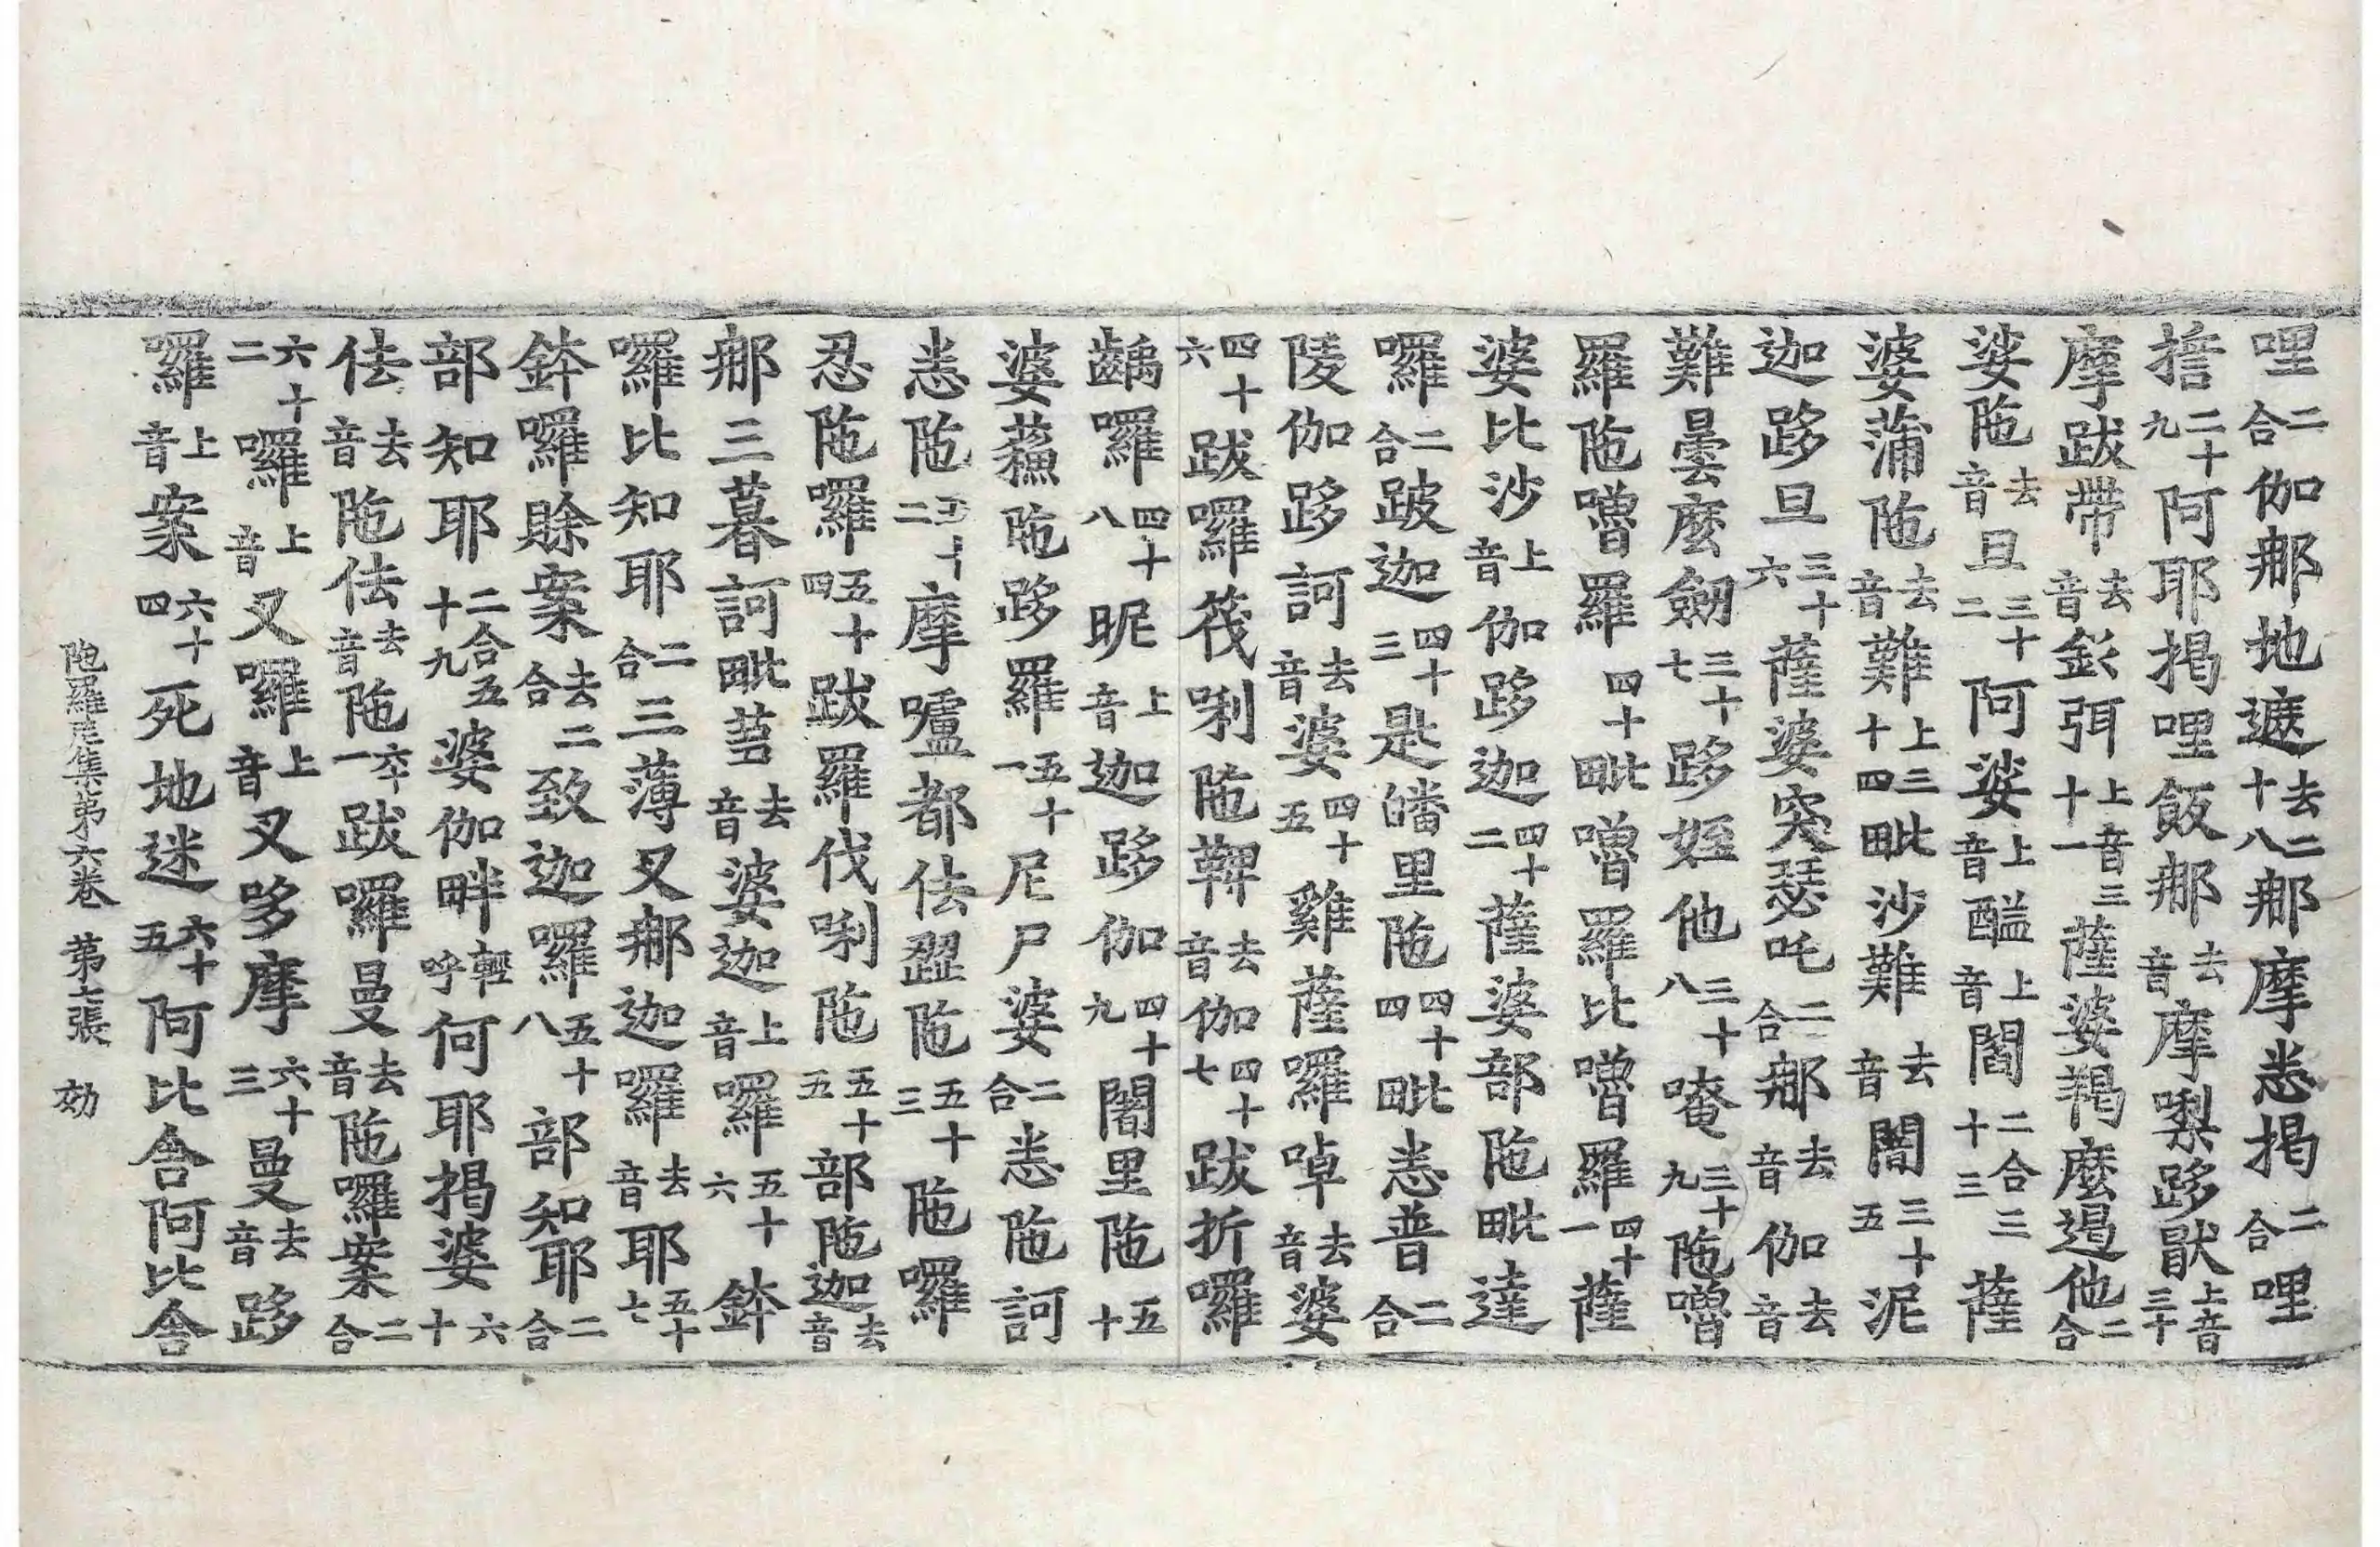 哩二合伽那地遮去二十八那摩悉揭二合哩
擔二十九阿耶揭哩飯那去音摩㗚跢猒上音三十
摩跋帶去音㰤弭上音三十一薩婆羯麼遏他二合
娑陁去音旦三十二阿娑上音醯上音閻二合三十三薩
婆蒲陁去音難上三十四毗沙難去音闍三十五泥
迦跢旦三十六薩婆突瑟吒二合那去音伽去音
難曇麼劒三十七跢姪他三十八唵三十九陁嚕
羅陁嚕羅四十毗嚕羅比嚕羅四十一薩
婆比沙上音伽跢迦四十二薩婆部陁毗達
囉二合跛迦四十三是皤里陁四十四毗悉普二合
陵伽跢訶去音婆四十五雞薩囉啅去音婆
四十六跋囉筏唎陁鞞去音伽四十七跋折囉
齲囉四十八昵上音迦跢伽四十九闍里陁五十
婆蘓陁跢羅五十一尼尸婆二合悉陁訶
悉陁五十二摩嚧都佉澀陁五十三陁囉
忍陁囉五十四跋羅伐唎陁五十五部陁迦去音
那三暮訶毗莒去音婆迦上音囉五十六鉢
囉比知耶二合三薄叉那迦囉去音耶五十七
鉢囉賖案去二合致迦囉五十八部知耶二合
部知耶二合五十九婆伽畔輕呼何耶揭婆六十
佉去音陁佉去音陁六十一跋囉曼去音陁囉案二合
六十二囉上音叉囉上音叉哆摩六十三曼去音跢
羅上音案六十四死地迷六十五阿比舎阿比舎
陁羅尼集第六卷 第七張 効